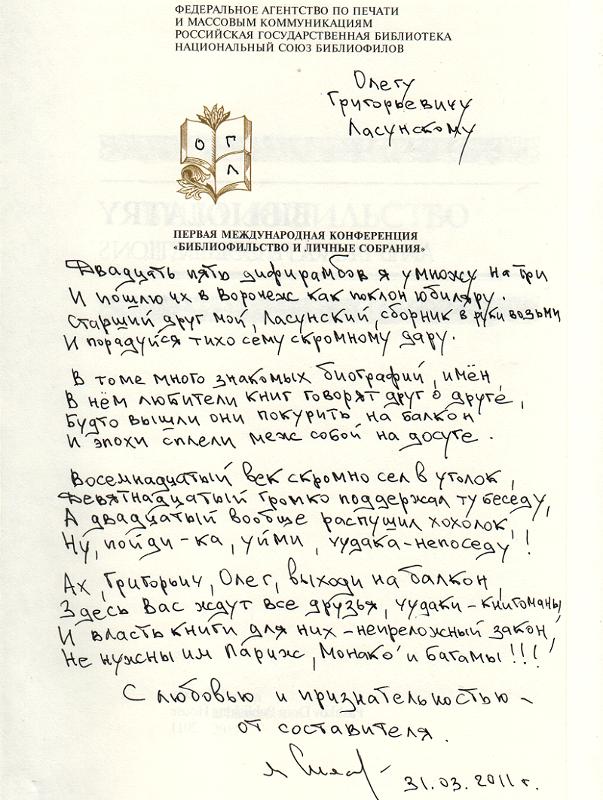 ФЕДЕРАЛЬНОЕ АГЕНТСТВО ПО ПЕЧАТИ
И МАССОВЫМ КОММУНИКАЦИЯМ
РОССИЙСКАЯ ГОСУДАРСТВЕННАЯ БИБЛИОТЕКА
НАЦИОНАЛЬНЫЙ СОЮЗ БИБЛИОФИЛОВ
Олегу
Григорьевичу
Ласунскому
О Г
Л
ПЕРВАЯ МЕЖДУНАРОДНАЯ КОНФЕРЕНЦИЯ
«БИБЛИОФИЛЬСТВО И ЛИЧНЫЕ СОБРАНИЯ»
Двадцать пять дифирамбов я умножу на три
И пошлю их в Воронеж как поклон юбиляру.
Старший друг мой, Ласунский, сборник в руки возьми
И порадуйся тихо сему скромному дару.
В томе много знакомых биографий, имён,
В нём любители книг говорят друг о друге,
Будто вышли они покурить на балкон
И эпохи сплели меж собой на досуге.
Восемнадцатый век скромно сел в уголок,
Девятнадцатый громко поддержал ту беседу,
А двадцатый вообще распушил хохолок,
Ну, пойди-ка, уйми, чудака-непоседу!
Ах, Григорьич, Олег, выходи на балкон,
Здесь Вас ждут все друзья, чудаки-книгоманы,
И власть книги для них – непреложный закон,
Не нужны им Париж, Монако и Багамы!!!
С любовью и признательностью –
от составителя.
31.03.2011 г.